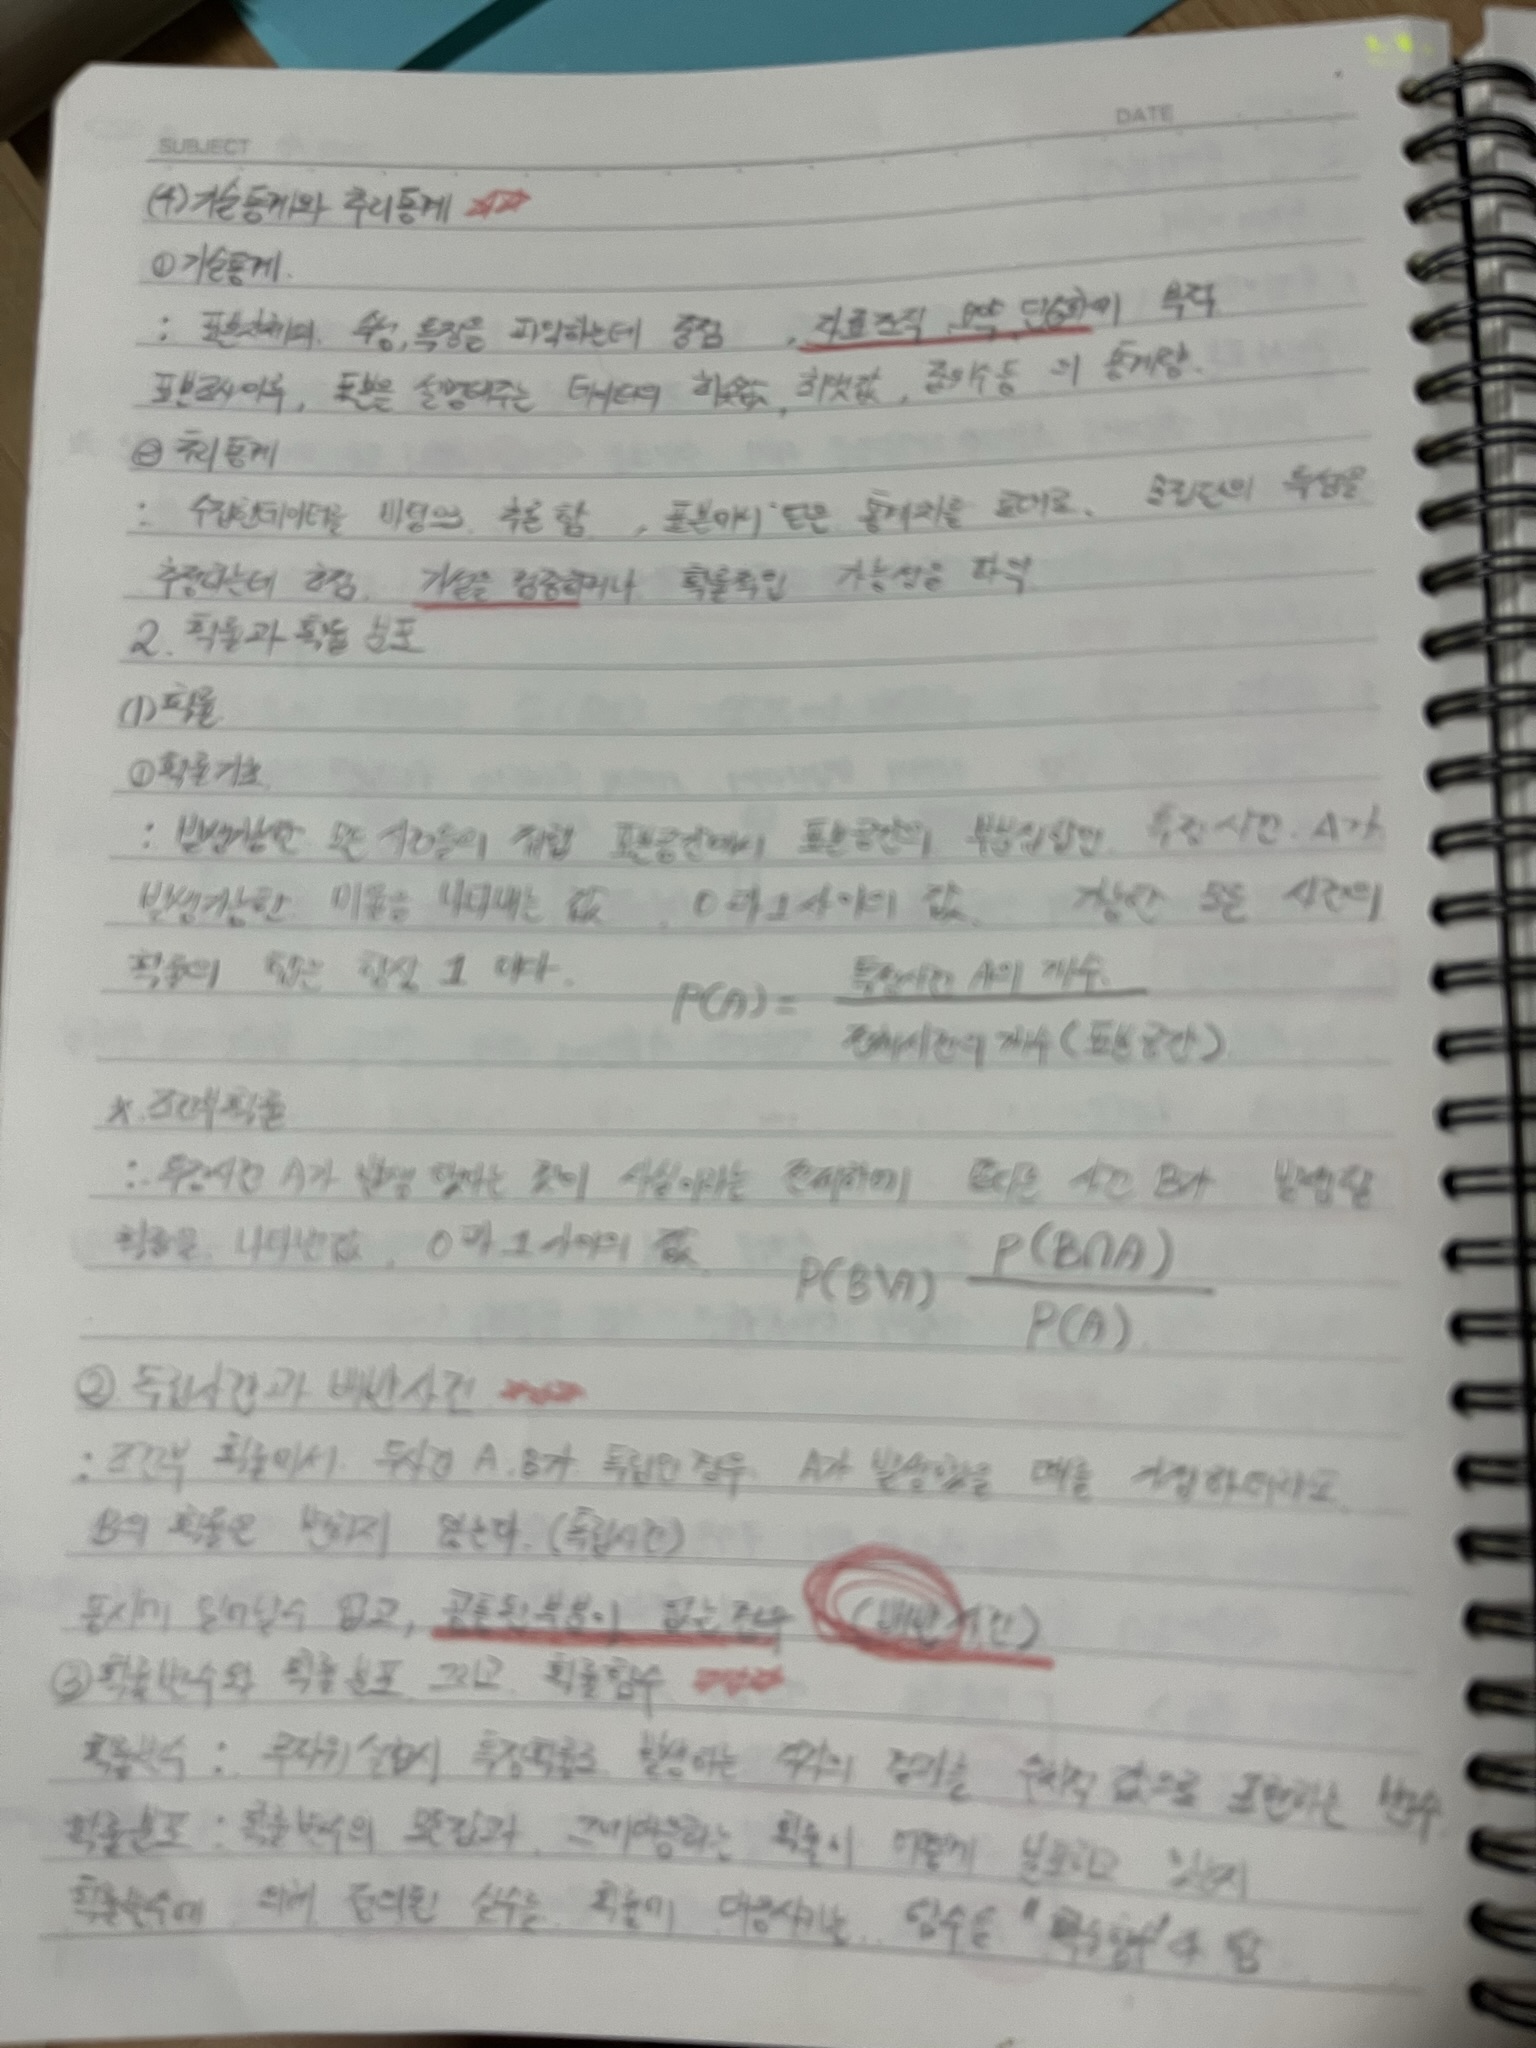 SUBJECT
DATE
(4) 기술통계와 추리통계
① 기술통계.
: 표본자체의 속성, 특징을 파악하는데 중점, 자료조직, 요약, 단순화에
표본조사이후, 표본을 설명해주는 데이터의 최솟값, 최댓값, 등의 통계량.
② 추리통계
: 수집한데이터를 바탕으로 추론함, 표본에서 얻은 통계치를 토대로. 모집단의 특성을
추정하는데 초점. 가설을 검증하거나 확률적인 가능성을 파악
2. 확률과 확률 분포
(1) 확률
① 확률기초
: 발생가능한 모든 사건들의 집합 표본공간에서 표본공간의 부분집합인 특정사건 A가
발생가능한 비율을 나타내는 값. 0과 1 사이의 값. 가능한 모든 사건의
확률의 합은 항상 1 이다.
P(A) = 특정사건 A의 개수.
전체사건의 개수 (표본공간)
* 조건부확률
: 특정사건 A가 발생 했다는 것이 사실이라는 전제하에 또다른 사건 B가 발생할
확률을 나타낸값. 0과 1 사이의 값
P(B\A) P(B∩A)
P(A)
② 독립사건과 배반사건
: 조건부 확률에서 두사건 A, B가 독립인 경우 A가 발생했을 때를 가정하더라도
B의 확률은 변하지 않는다. (독립사건)
동시에 일어날수 없고, 공통된부분이 없는경우 (배반사건)
③ 확률변수와 확률분포 그리고 확률함수
확률변수 : 무작위실험시 특정확률로 발생하는 각각의 결과를 수치적 값으로 표현하는 변수
확률분포 : 확률변수의 모든값과 그에대응하는 확률이 어떻게 분포하고 있는지
확률변수에 의해 정의된 실수는 확률에 대응시키는 함수를 " " 라 함